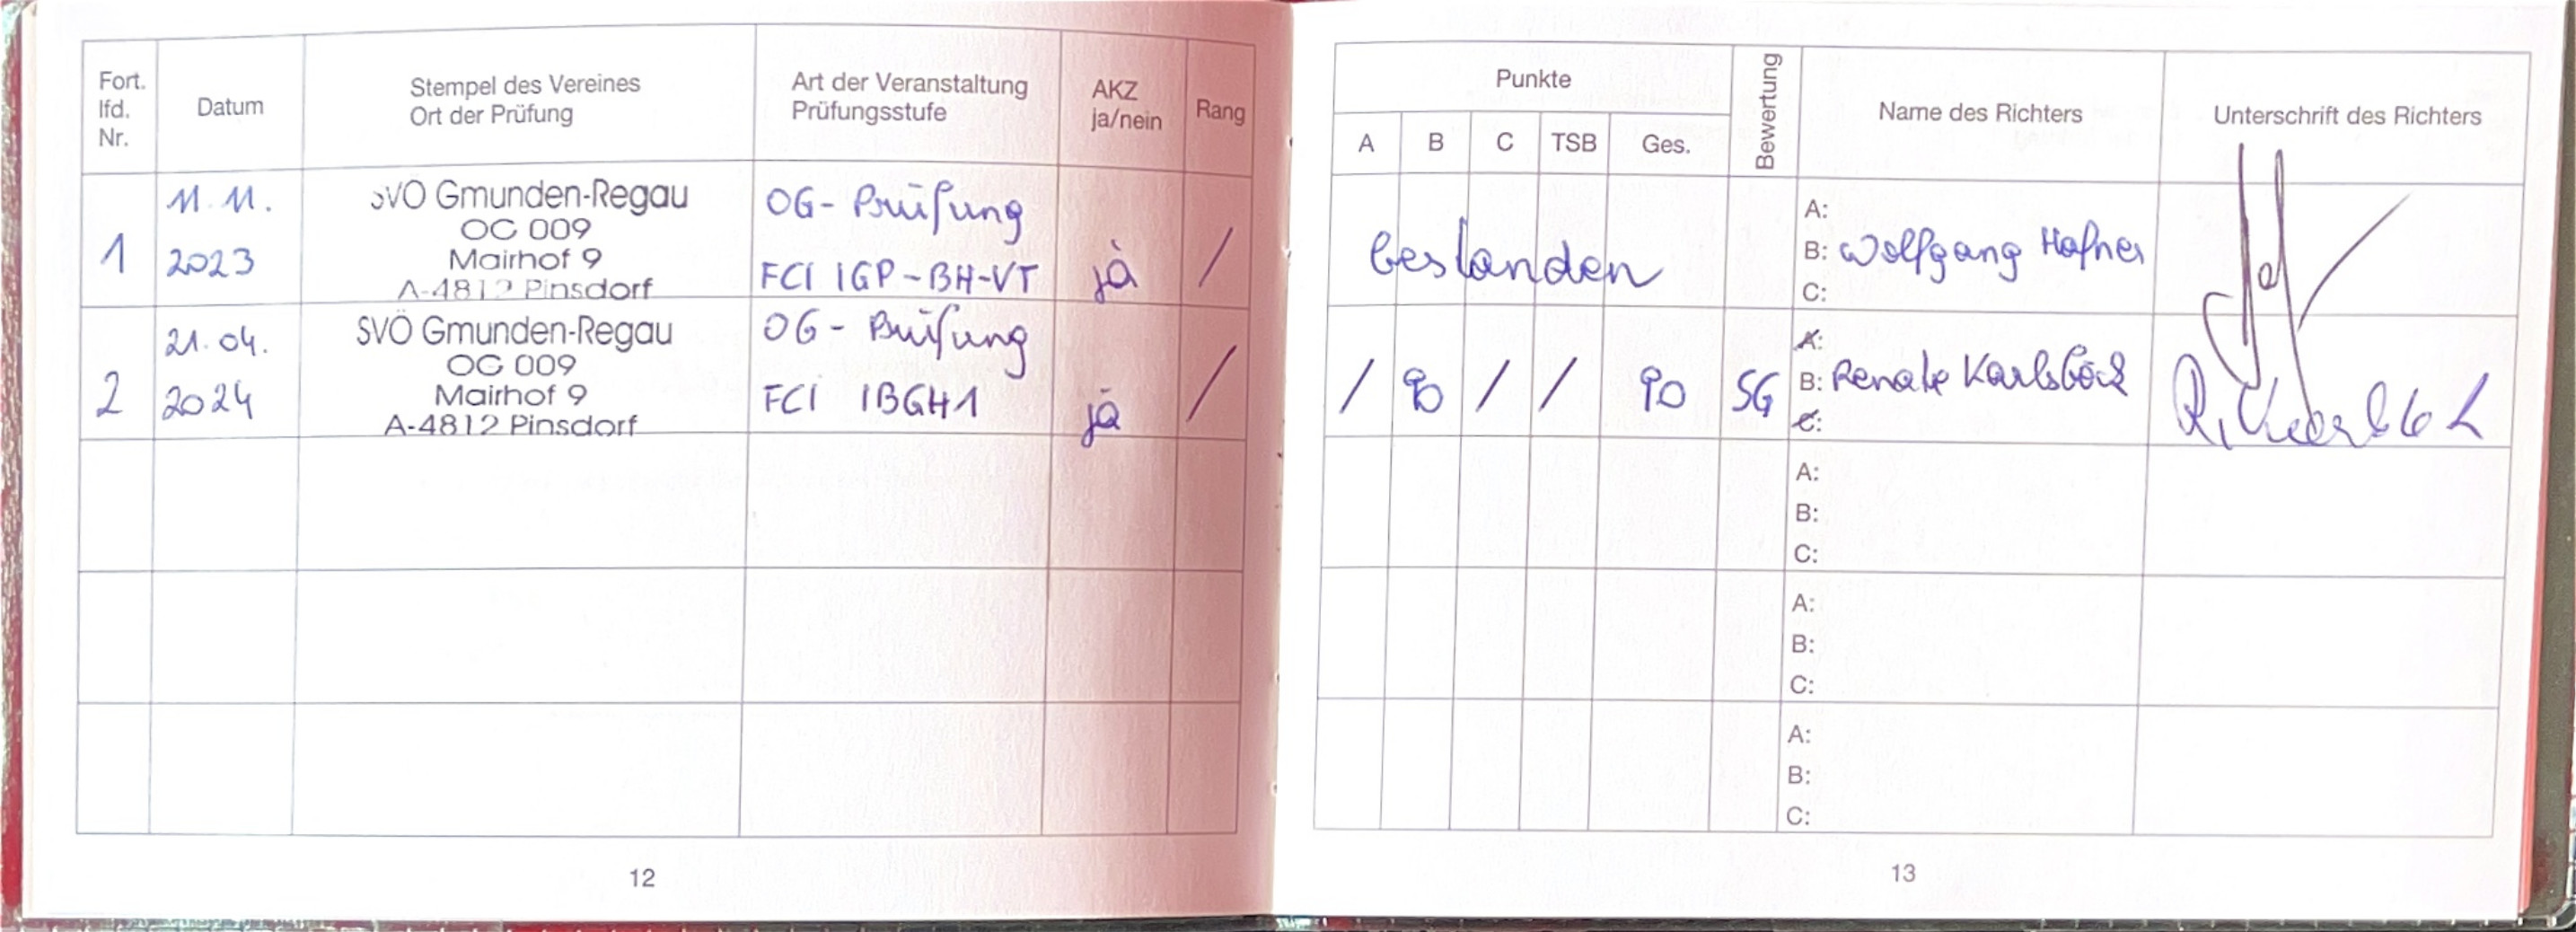 Fort.
lfd.
Nr.
Datum
Stempel des Vereines
Ort der Prüfung
Art der Veranstaltung
Prüfungsstufe
AKZ
ja/nein
Rang
1
11.11.
2023
SVÖ Gmunden-Regau
OG 009
Mairhof 9
A-4812 Pinsdorf
OG-Prüfung
FCI IGP-BH-VT
ja
/
2
21.04.
2024
SVÖ Gmunden-Regau
OG 009
Mairhof 9
A-4812 Pinsdorf
OG-Prüfung
FCI IBGH1
ja
/
12
Punkte
A B C TSB Ges.
Bewertung
Name des Richters
Unterschrift des Richters
bestanden
A:
B: Wolfgang Hafner
C:
/ 90 / / 90 SG
A:
B: Renate Karlsböck
C:
A:
B:
C:
A:
B:
C:
A:
B:
C:
13